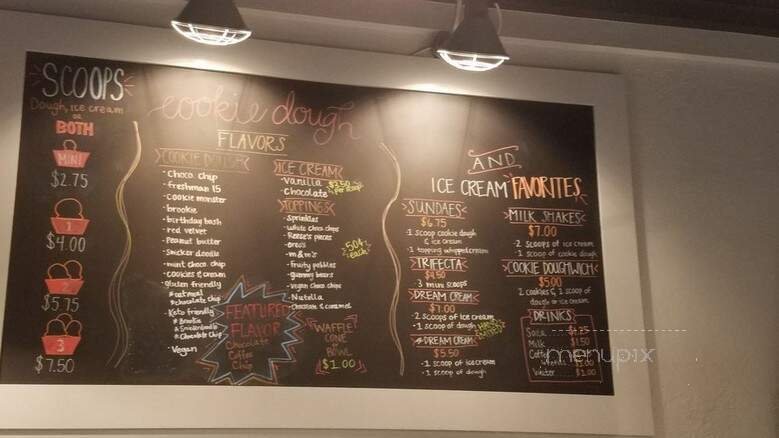 SCOOPS
Dough, ice cream
or
BOTH
MINI
$2.75
1
$4.00
2
$5.75
3
$7.50
cookie dough
FLAVORS
COOKIE DOUGH
· choco chip
· freshman 15
· cookie monster
· brookie
· birthday bash
· red velvet
· Peanut butter
· snickerdoodle
· mint choco chip
· cookies & cream
· gluten friendly
* oatmeal
* chocolate chip
· Keto friendly
* Brookie
* Snickerdoodle
* Chocolate Chip
· Vegan
FEATURED
FLAVOR
Chocolate
Coffee
Chip
ICE CREAM
· vanilla
· chocolate
$2.50
per scoop
TOPPINGS
· sprinkles
· white choco chips
· Reese's pieces
· oreo's
· m&m's
· fruity pebbles
· gummy bears
· vegan choco chips
· Nutella
· Chocolate & caramel
50¢
each
WAFFLE
CONE
or
BOWL
$1.00
AND
ICE CREAM FAVORITES
SUNDAES
$6.75
· 1 scoop cookie dough
& ice cream
· 1 topping whipped cream
TRIFECTA
$4.50
3 mini scoops
DREAM CREAM
$7.00
· 2 scoops of ice cream
· 1 scoop of dough
DREAM CREAM
$5.50
· 1 scoop of ice cream
· 1 scoop of dough
MILK SHAKES
$7.00
· 2 scoops of ice cream
· 1 scoop of cookie dough
COOKIE DOUGHWICH
$5.00
2 cookies & 1 scoop of
dough or ice cream
DRINKS
Soda $1.25
Milk $1.50
Coffee
$2.00
Water $2.00
menupix